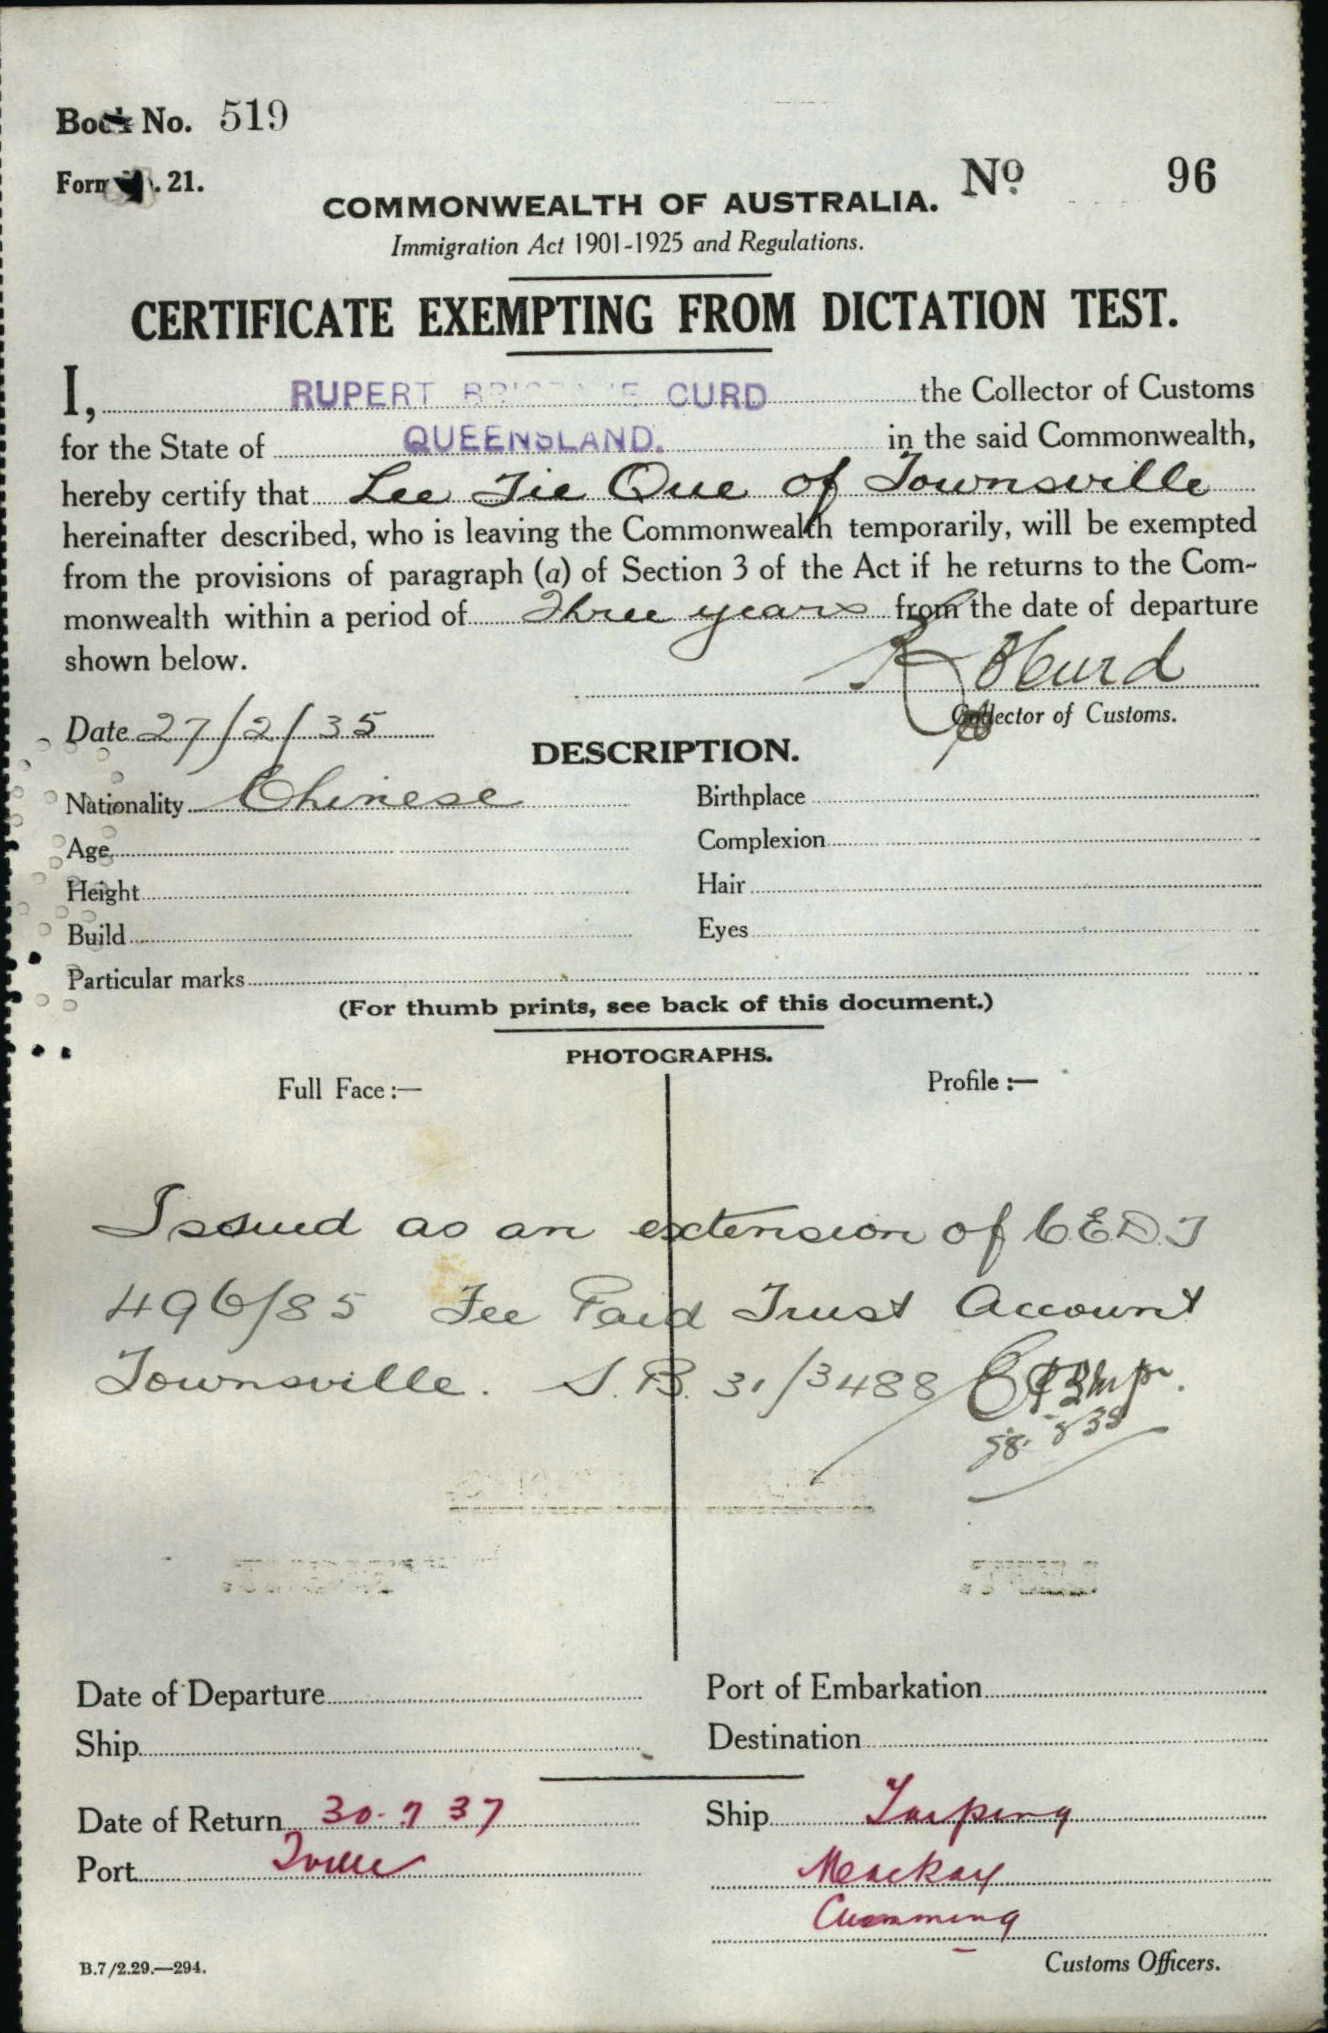 Book No. 519
Form 21.
No. 96
COMMONWEALTH OF AUSTRALIA.
Immigration Act 1901-1925 and Regulations.
CERTIFICATE EXEMPTING FROM DICTATION TEST.
I, RUPERT CURD the Collector of Customs
for the State of QUEENSLAND. in the said Commonwealth,
hereby certify that Lee Tie Que of Townsville
hereinafter described, who is leaving the Commonwealth temporarily, will be exempted
from the provisions of paragraph (a) of Section 3 of the Act if he returns to the Com-
monwealth within a period of Three years from the date of departure
shown below.
Collector of Customs.
Date 27/2/35
DESCRIPTION.
Nationality Chinese Birthplace
Age Complexion
Height Hair
Build Eyes
Particular marks
(For thumb prints, see back of this document.)
PHOTOGRAPHS.
Full Face:— Profile:—
Issued as an extension of C.E.D.T
496/85 Fee Paid Trust Account
Townsville. S.B. 31/3488
Date of Departure Port of Embarkation
Ship Destination
Date of Return 30.7 37 Ship Taiping
Port Tville Mackay
Cumming
B.7/2.29.—294. Customs Officers.